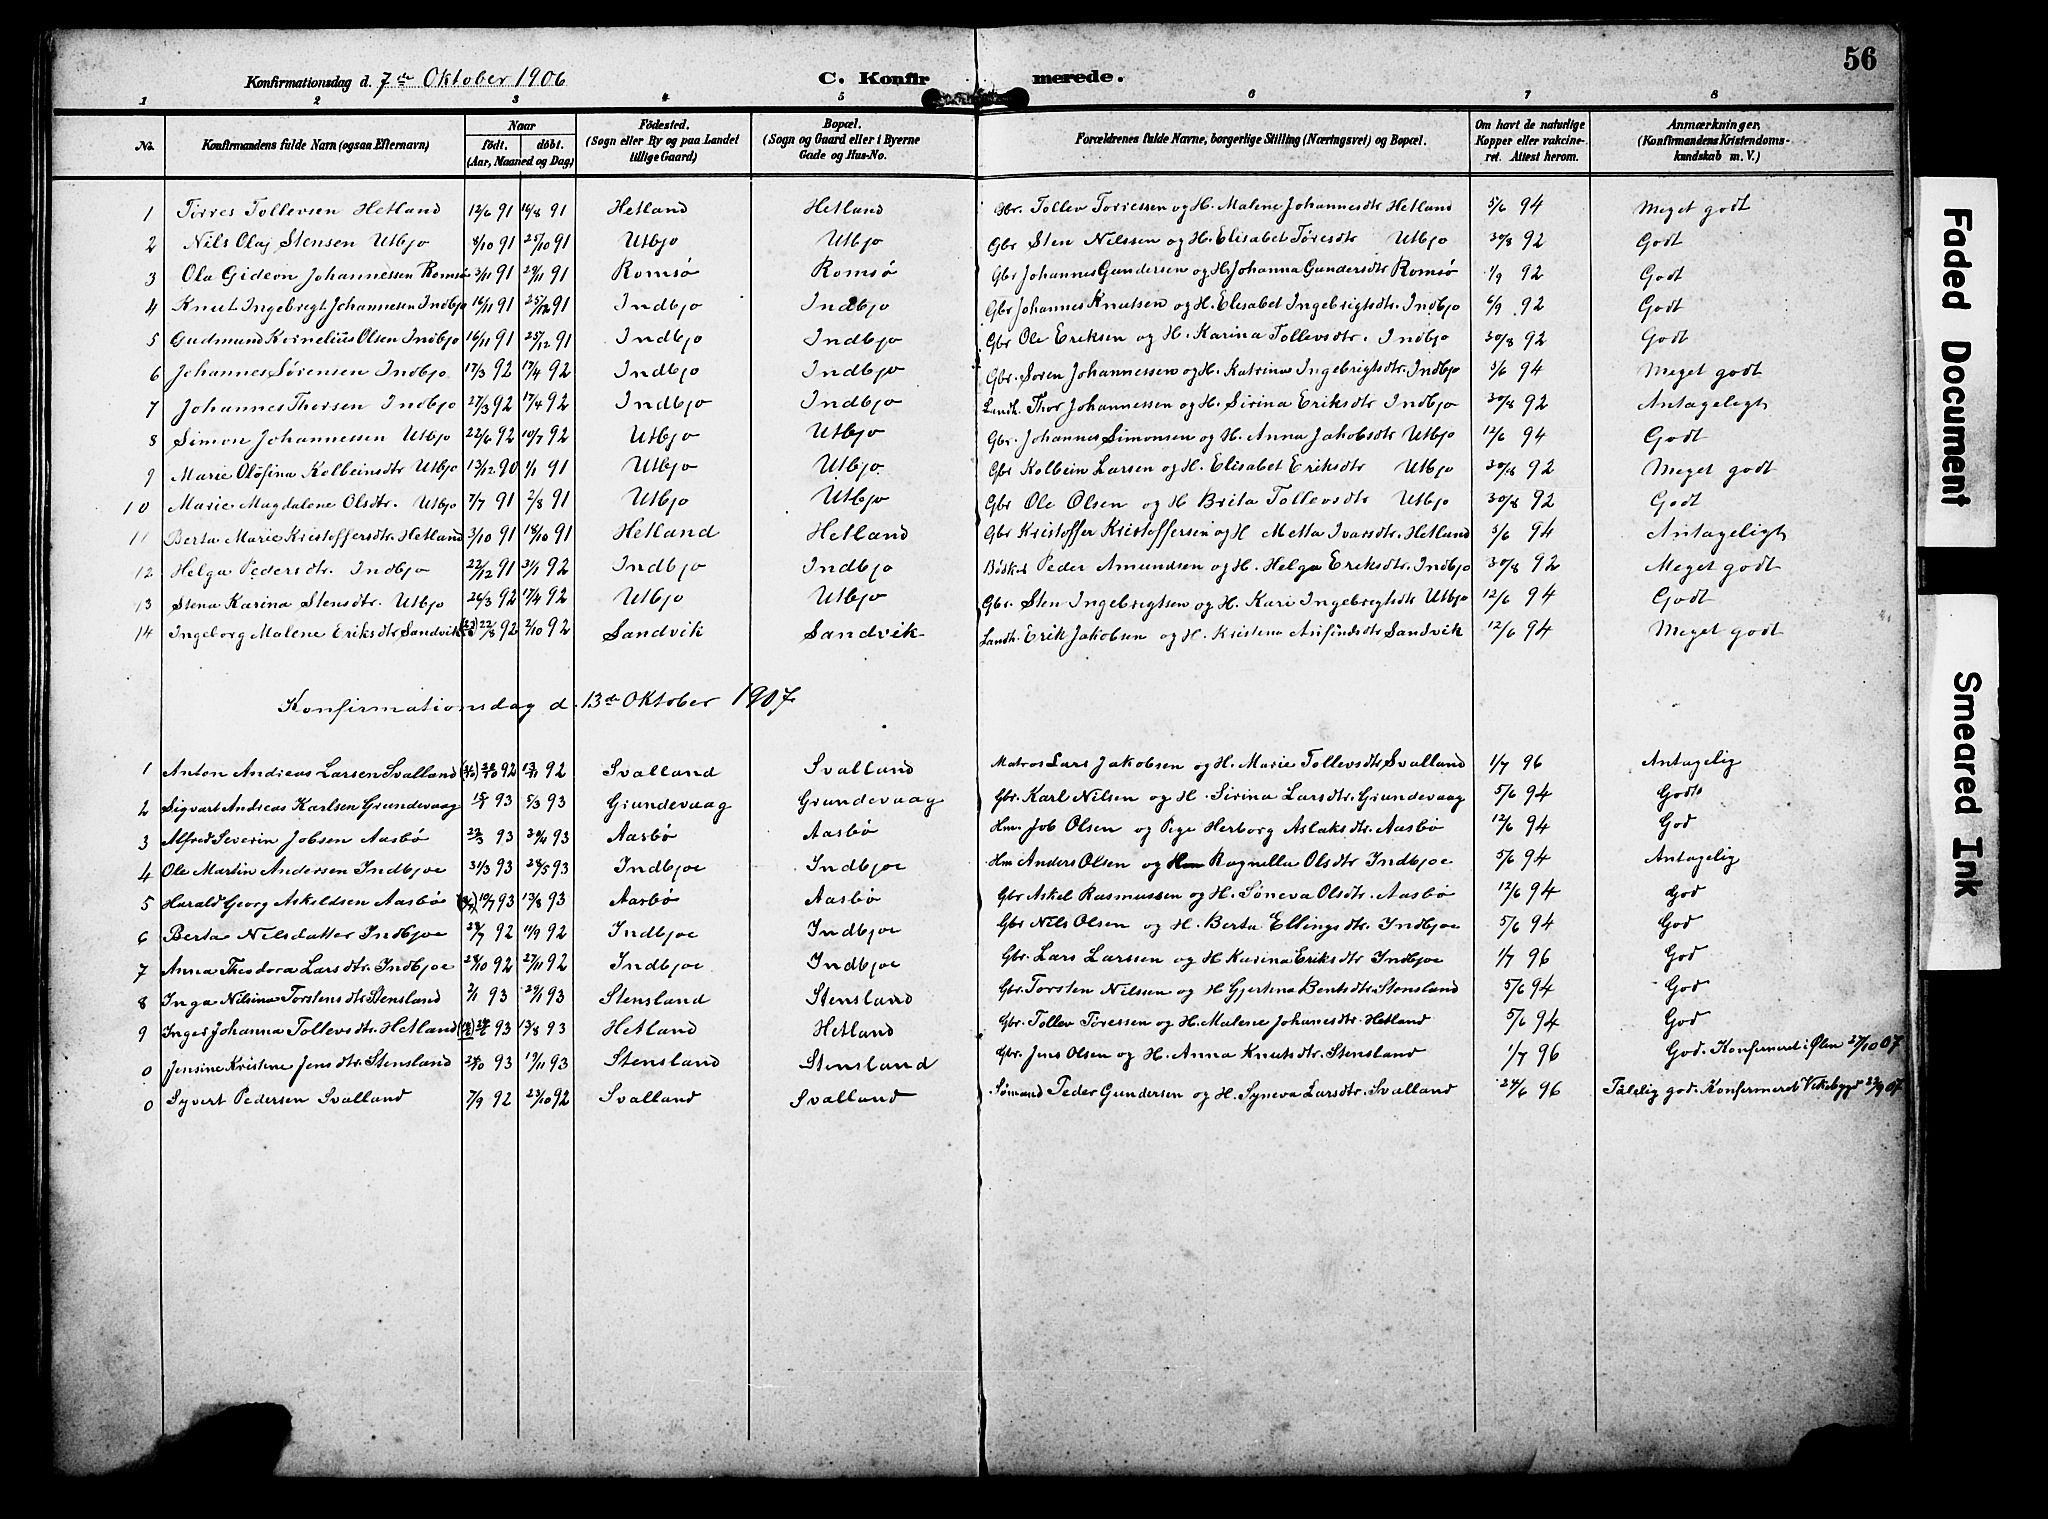 56
Konfirmationsdag d. 7de Oktober 1906 C. Konfirmerede.
1 2 3 4 5 6 7 8
No. Konfirmandens fulde Navn (ogsaa Efternavn) Naar født. døbt. (Aar, Maaned og Dag) Fødested. (Sogn eller By og paa Landet tillige Gaard) Bopæl. (Sogn og Gaard eller i Byerne Gade og Hus-No. Forældrenes fulde Navne, borgerlige Stilling (Næringsvei) og Bopæl. Om havt de naturlige Kopper eller vakcineret. Attest herom. Anmærkninger, (Konfirmandens Kristendomskundskab m. V.)
1 Tørres Tollevsen Hetland 12/6 91 16/8 91 Hetland Hetland Gbr. Tollev Tørressen og H. Malene Johannesdtr Hetland 5/6 94 Meget godt
2 Nils Olaj Stensen Utbjo 8/10 91 25/10 91 Utbjo Utbjo Gbr Sten Nilssen og H. Elisabet Tøresdtr Utbjo 30/8 92 Godt
3 Ola Gideon Johannessen Romsø 3/11 91 29/11 91 Romsø Romsø Gbr Johannes Gundersen og H. Johanna Gundersdtr Romsø 1/9 92 Godt
4 Knut Ingebrigt Johannessen Indbjo 16/11 91 25/12 91 Indbjo Indbjo Gbr Johannes Knutsen og H. Elisabet Ingebrigtsdtr. Indbjo 6/9 92 Godt
5 Gudmund Kornelius Olsen Indbjo 16/11 91 25/12 91 Indbjo Indbjo Gbr Ole Eriksen og H. Karina Tollevsdtr. Indbjo 30/8 92 Godt
6 Johannes Sørensen Indbjo 17/3 92 17/4 92 Indbjo Indbjo Gbr. Søren Johannessen og H. Katrina Ingebrigtsdtr. Indbjo 5/6 94 Meget godt
7 Johannes Thorsen Indbjo 27/3 92 17/4 92 Indbjo Indbjo Landh. Thor Johannessen og H. Sirina Eriksdtr Indbjo 30/8 92 Antageligt
8 Simon Johannessen Utbjo 22/6 92 10/7 92 Utbjo Utbjo Gbr. Johannes Simonsen og H. Anna Jakobsdtr Utbjo 12/6 94 Godt
9 Marie Olöfina Kolbeinsdtr Utbjo 13/12 90 1/1 91 Utbjo Utbjo. Gbr Kolbein Larsen og H. Elisabet Eriksdtr Utbjo 30/8 92 Meget godt
10 Marie Magdalene Olsdtr. Utbjo 7/7 91 2/8 91 Utbjo Utbjo Gbr Ole Olsen og H Brita Tollevsdtr Utbjo 30/8 92 Godt
11 Berta Marie Kristoffersdtr. Hetland 3/10 91 18/10 91 Hetland Hetland Gbr Kristoffer Kristoffersen og H Metta Ivarsdtr. Hetland 5/6 94 Antageligt
12 Helga Pedersdtr. Indbjo 22/12 91 31/1 92 Indbjo Indbjo Bødker Peder Amundsen og H. Helga Eriksdtr. Indbjo 30/8 92 Meget godt
13 Stena Karina Stensdtr. Utbjo 26/3 92 17/4 92 Utbjo Utbjo Gbr. Sten Ingebrigtsen og H. Kari Ingebrigtsdtr Utbjo 12/6 94 Godt
14 Ingeborg Malene Eriksdtr Sandvik 22/8 92 2/10 92 Sandvik Sandvik Landh. Erik Jakobsen og H. Kristena Anfindsdtr Sandvik 12/6 94 Meget godt
Konfirmationsdag d. 13de Oktober 1907
1 Anton Andreas Larsen Svalland 92 13/11 92 Svalland Svalland Matros Lars Jakobsen og H. Marie Tollevsdtr, Svalland 1/7 96 Antagelig
2 Sigvart Andreas Karlsen Grundevaag 93 5/3 93 Grundevaag Grundevaag Gbr. Karl Nilsen og H. Sirina Larsdtr. Grundevaag 5/6 94 Godt
3 Alfred Severin Jobsen Aasbø 22/3 93 30/4 93 Aasbø Aasbø Hm. Job Olsen og Pige Herborg Aslaksdtr. Aasbø 12/6 94 God
4 Ole Martin Andersen Indbjoe 31/3 93 28/5 93 Indbjoe Indbjoe Hm Anders Olsen og Ragnilla Olsdtr Indbjoe 5/6 94 Antagelig
5 Harald Georg Askeldsen Aasbø 10/7 93 13/8 93 Aasbø Aasbø Gbr Askel Rasmussen og H. Søneva Olsdtr. Aasbø 12/6 94 God
6 Berta Nilsdatter Indbjoe 28/7 92 11/9 92 Indbjoe Indbjoe Gbr Nils Olsen og H. Berta Ellingsdtr. Indbjoe 5/6 94 God
7 Anna Theodora Larsdtr. Indbjoe 28/10 92 27/11 92 Indbjoe Indbjoe Gbr. Lars Larssen og H Karina Eriksdtr Indbjoe 1/7 96 God
8 Inga Nilsina Torstensdtr Stensland 2/1 93 29/1 93 Stensland Stensland Gbr. Torsten Nilssen og H Gjertina Bentsdtr. Stensland 5/6 94 God
9 Inger Johanna Tollevsdtr. Hetland 93 13/8 93 Hetland Hetland Gbr. Tollev Tøressen og H. Malene Johanesdtr. Hetland 5/6 94 God
0 Jensine Kristine Jensdtr. Stensland 93 19/11 93 Stensland Stensland Gbr. Jens Olsen og H. Anna Knutsdtr. Stensland 1/7 96 God. Konfirmeret i Ølen 27/10 07
0 Syvert Pedersen Svalland 7/9 92 23/10 92 Svalland Svalland Sømand Peder Gundersen og H. Syneva Larsdtr. Svalland 24/6 96 Taalelig god. Konfirmeret Vikebygd 22/9 07
Faded Document
Smeared Ink